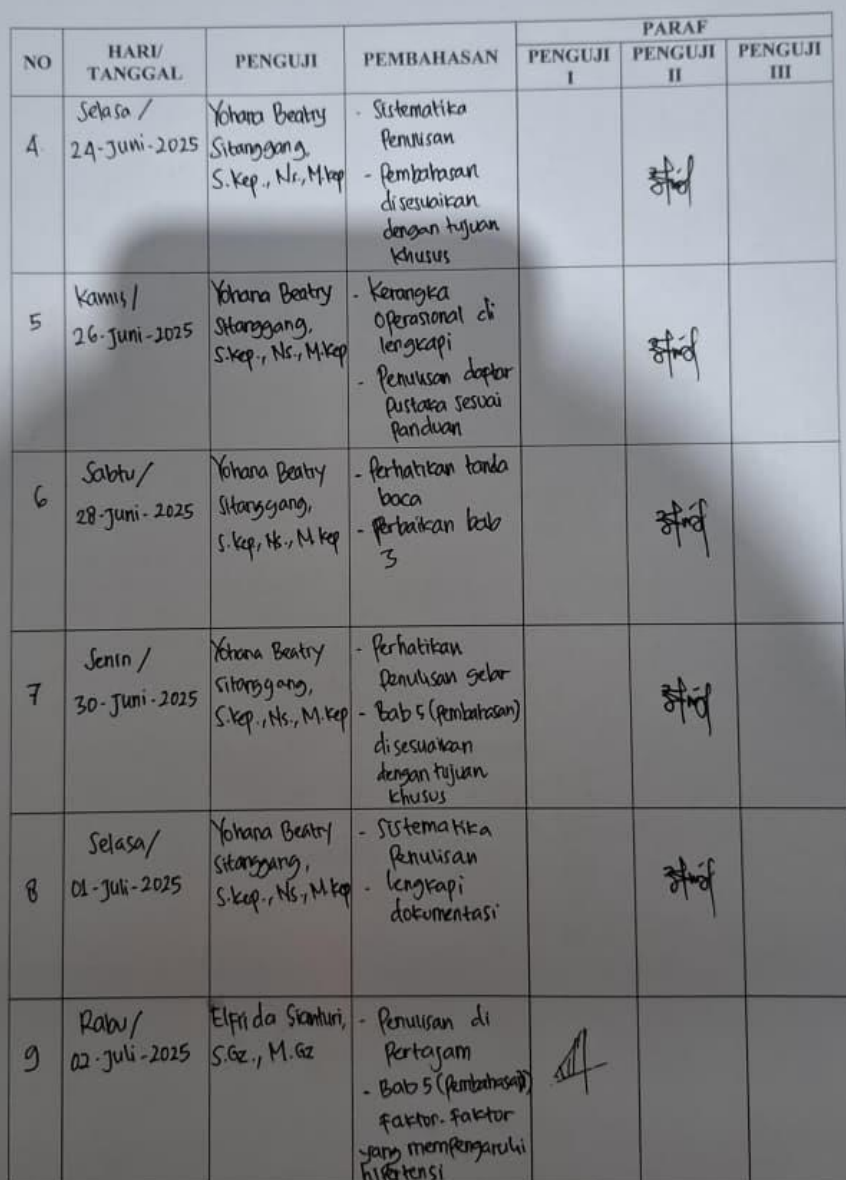 NO HARI/ TANGGAL PENGUJI PEMBAHASAN PARAF
PENGUJI I PENGUJI II PENGUJI III
4. Selasa /
24-Juni-2025
Yohana Beatry
Sitanggang,
S.Kep., Ns., M.Kep
- Sistematika
Penulisan
- Pembahasan
disesuaikan
dengan tujuan
khusus
5 Kamis/
26-Juni-2025
Yohana Beatry
Sitanggang,
S.Kep., Ns., M.Kep
- Kerangka
Operasional di
lengkapi
- Penulisan daptar
Pustaka sesuai
Panduan
6 Sabtu/
28-Juni-2025
Yohana Beatry
Sitanggang,
S.Kep, Ns., M.Kep
- Perhatikan tanda
baca
- Perbaikan bab
3
7 Senin /
30-Juni-2025
Yohana Beatry
Sitanggang,
S.Kep., Ns., M.Kep
- Perhatikan
Penulisan gelar
- Bab 5 (Pembahasan)
disesuaikan
dengan tujuan
khusus
8 Selasa/
01-Juli-2025
Yohana Beatry
Sitanggang,
S.Kep., Ns., M.Kep
- Sistematika
Penulisan
- lengkapi
dokumentasi
9 Rabu/
02-Juli-2025
Elfrida Sianturi,
S.Gz., M.Gz
- Penulisan di
Pertajam
- Bab 5 (Pembahasan)
faktor-faktor
yang mempengaruhi
hipertensi